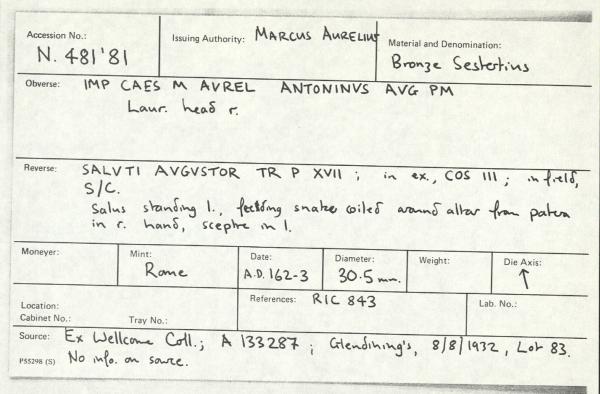 Accession No.: N. 481'81
Issuing Authority: MARCUS AURELIUS
Material and Denomination: Bronze Sestertius
Obverse: IMP CAES M AVREL ANTONINVS AVG PM
Laur. head r.
Reverse: SALVTI AVGVSTOR TR P XVII ; in ex., COS III ; in field,
S/C.
Salus standing l., feeding snake coiled around altar from patera
in r. hand, sceptre in l.
Moneyer:
Mint: Rome
Date: A.D. 162-3
Diameter: 30.5 mm.
Weight:
Die Axis: ↑
Location:
Cabinet No.: Tray No.:
References: RIC 843
Lab. No.:
Source: Ex Wellcome Coll.; A 133287 ; Glendining's, 8/8/1932, Lot 83.
PS5298 (S) No info. on source.